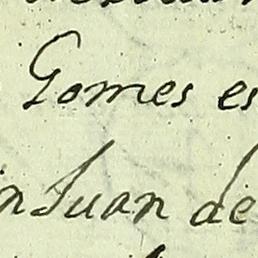 Gomes es
n Juan de